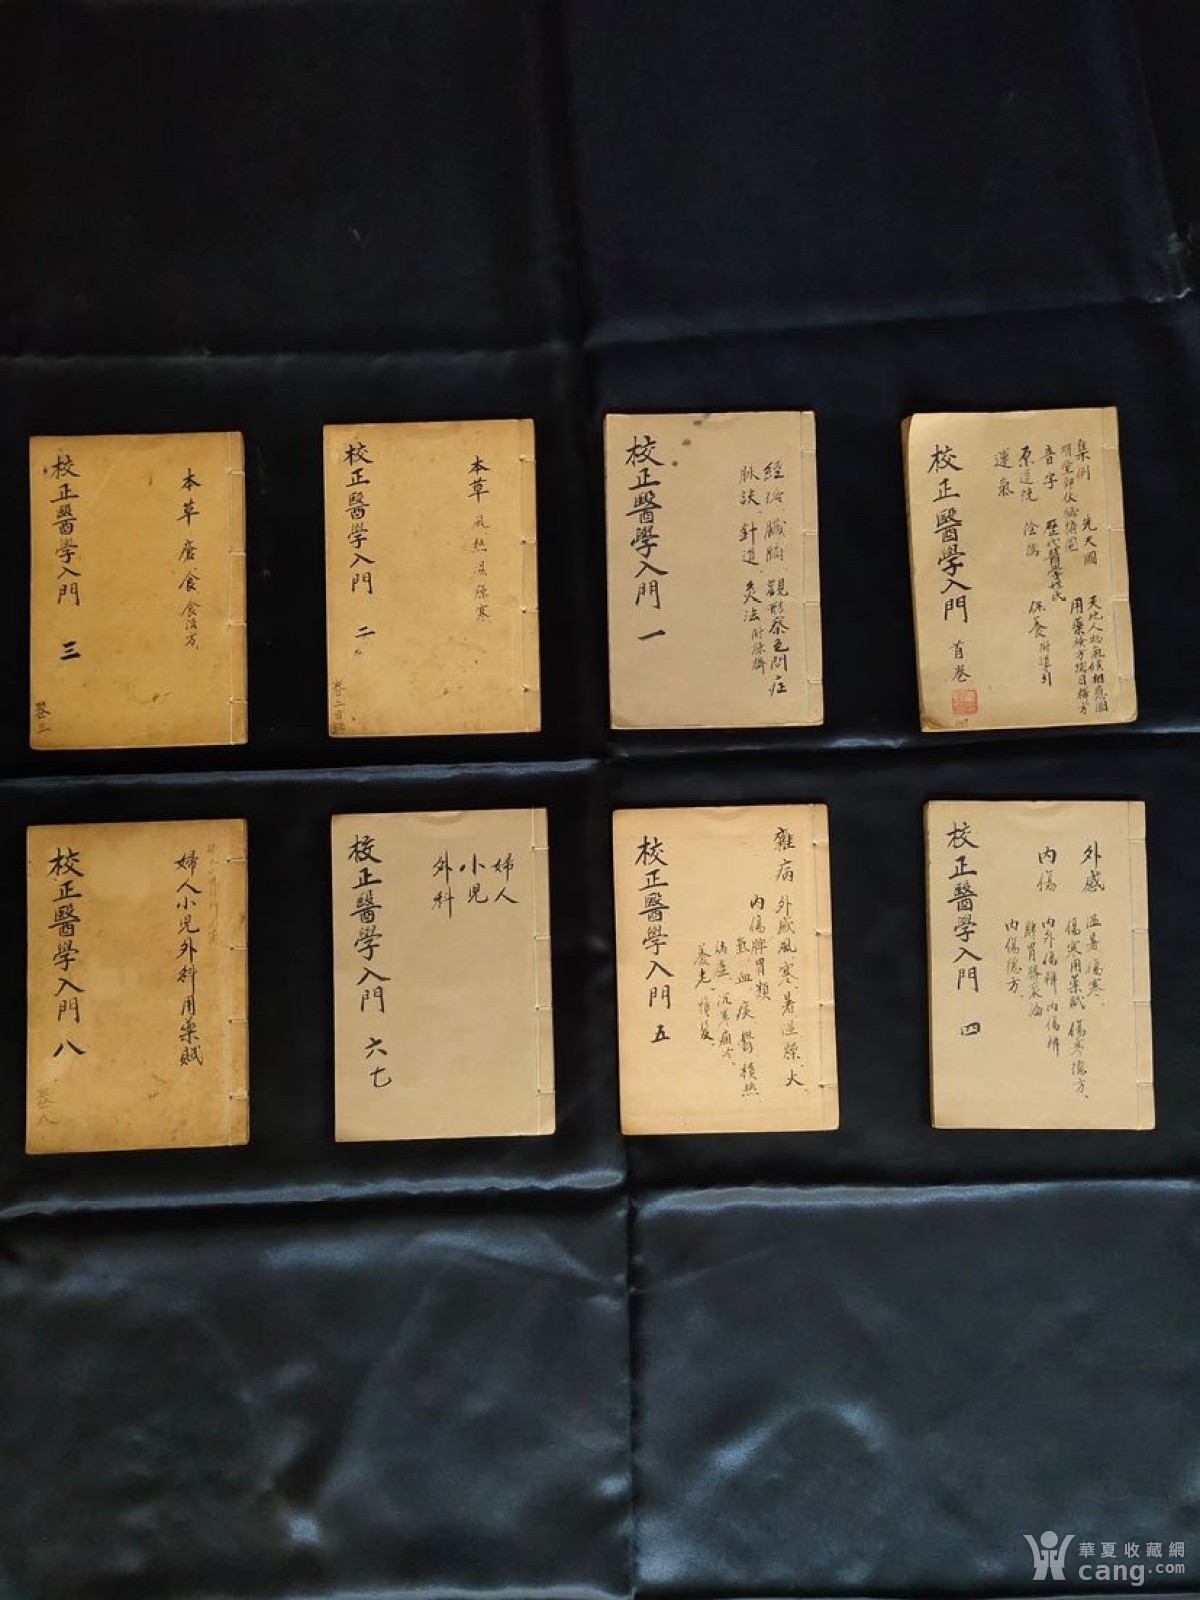 集例 先天圖 天地人物氣候相應圖
明堂卧伏
用藥檢方總目
音字 歷代醫學姓氏
原道統 陰隲 保養 附導引
運氣
校正醫學入門 首卷
經絡 臟腑、觀形察色問症
脉訣、針道 灸法
校正醫學入門 一
本草 風熱濕燥寒
校正醫學入門 二
卷二
本草 瘡 食 食治方
校正醫學入門 三
卷三
外感 溫暑 傷寒、
傷寒用藥賦 傷寒總方、
內傷 內外傷辨 內傷辨
脾胃勝衰論
內傷總方、
校正醫學入門 四
雜病 外感風寒、暑溫燥、火、
內傷脾胃類
氣、血 痰 鬱 積熱
諸虛、沉寒痼冷、
養老
校正醫學入門 五
婦人
小児
外科
校正醫學入門 六七
婦人小児外科用藥賦
校正醫學入門 八
卷八
華夏收藏網
cang.com